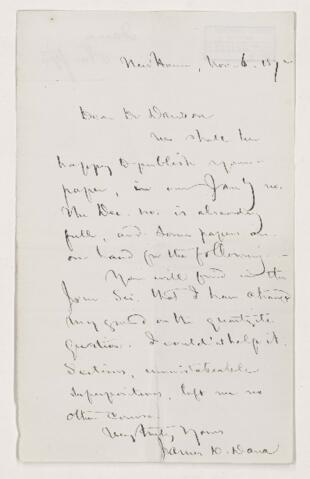 New Haven, Nov. 6. 1872
Dear Dr Dawson
We shall be
happy to publish your
paper, in our Jan'y no.
The Dec. no. is already
full, and some papers are
on hand for the following.
You will find in the
Jour. Sci. that I have changed
my ground on the quartzite
question. I couldn't help it.
Sections, unmistakeable
superpositions, left me no
other course.
Very truly Yours
James D. Dana